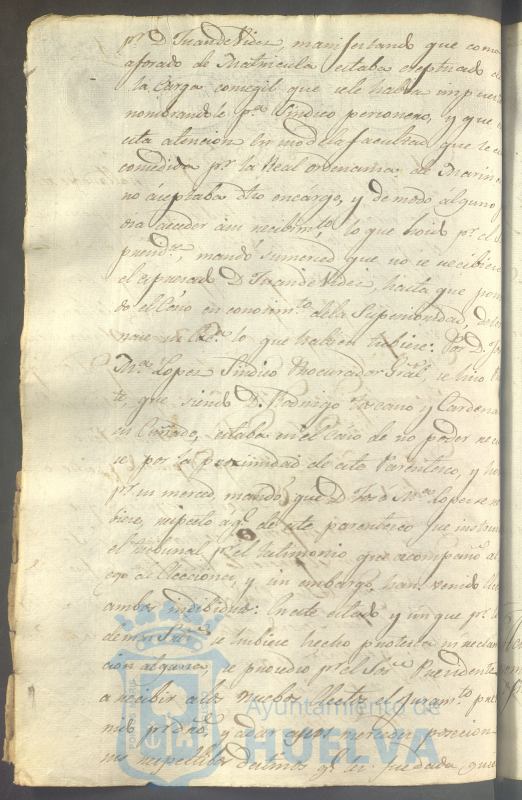 pr. D. Juan de Vides, manifestando que como
aforado de Matricula estaba exeptuado de
la Carga concegil que se le habia impuesto
nombrandole pa. Sindico personero, y que en
esta atencion en uso de la facultad que le es
comedida pr. la Real ordenanza de Marina
no aceptaba otro encargo, y de modo alguno
acceder a su recibimto. lo que hoido pr. el
Presidte. mandó su merced que no se recibiese
el expresado D. Juan de Vides, hasta que
do el Caso en conocimto. de la Superioridad, deter
lo que habien tubiese: Por D.
Ma. Lopez Sindico Procurador Gral. se hizo
te, que siendo D. Rodrigo Toscano y Cardenas
su Cuñado, estaba en el Caso de no poder
se por la proximidad de este Parentesco, y
pr. su merced, mandó que D. Ma. Lopez se
biese, respecto á qe. de este parentesco se
el tribunal pr. el testimonio que acompañó al
de Elecciones, y sin embargo, han venido
ambos individuos: En este estado y sin que pr. los
demas Sres. se hubiese hecho protesta ni reclama
cion alguna se procedio pr. el Sor. Presidente
a recibir a los nuebos electos el Juramto.
pr. dro. y a dar
sus respectivos destinos
Ayuntamiento de
HUELVA